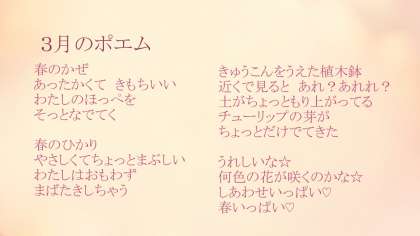 ３月のポエム
春のかぜ
あったかくて きもちいい
わたしのほっぺを
そっとなでてく
春のひかり
やさしくてちょっとまぶしい
わたしはおもわず
まばたきしちゃう
きゅうこんをうえた植木鉢
近くで見ると あれ？あれれ？
土がちょっともり上がってる
チューリップの芽が
ちょっとだけでてきた
うれしいな☆
何色の花が咲くのかな☆
しあわせいっぱい♡
春いっぱい♡